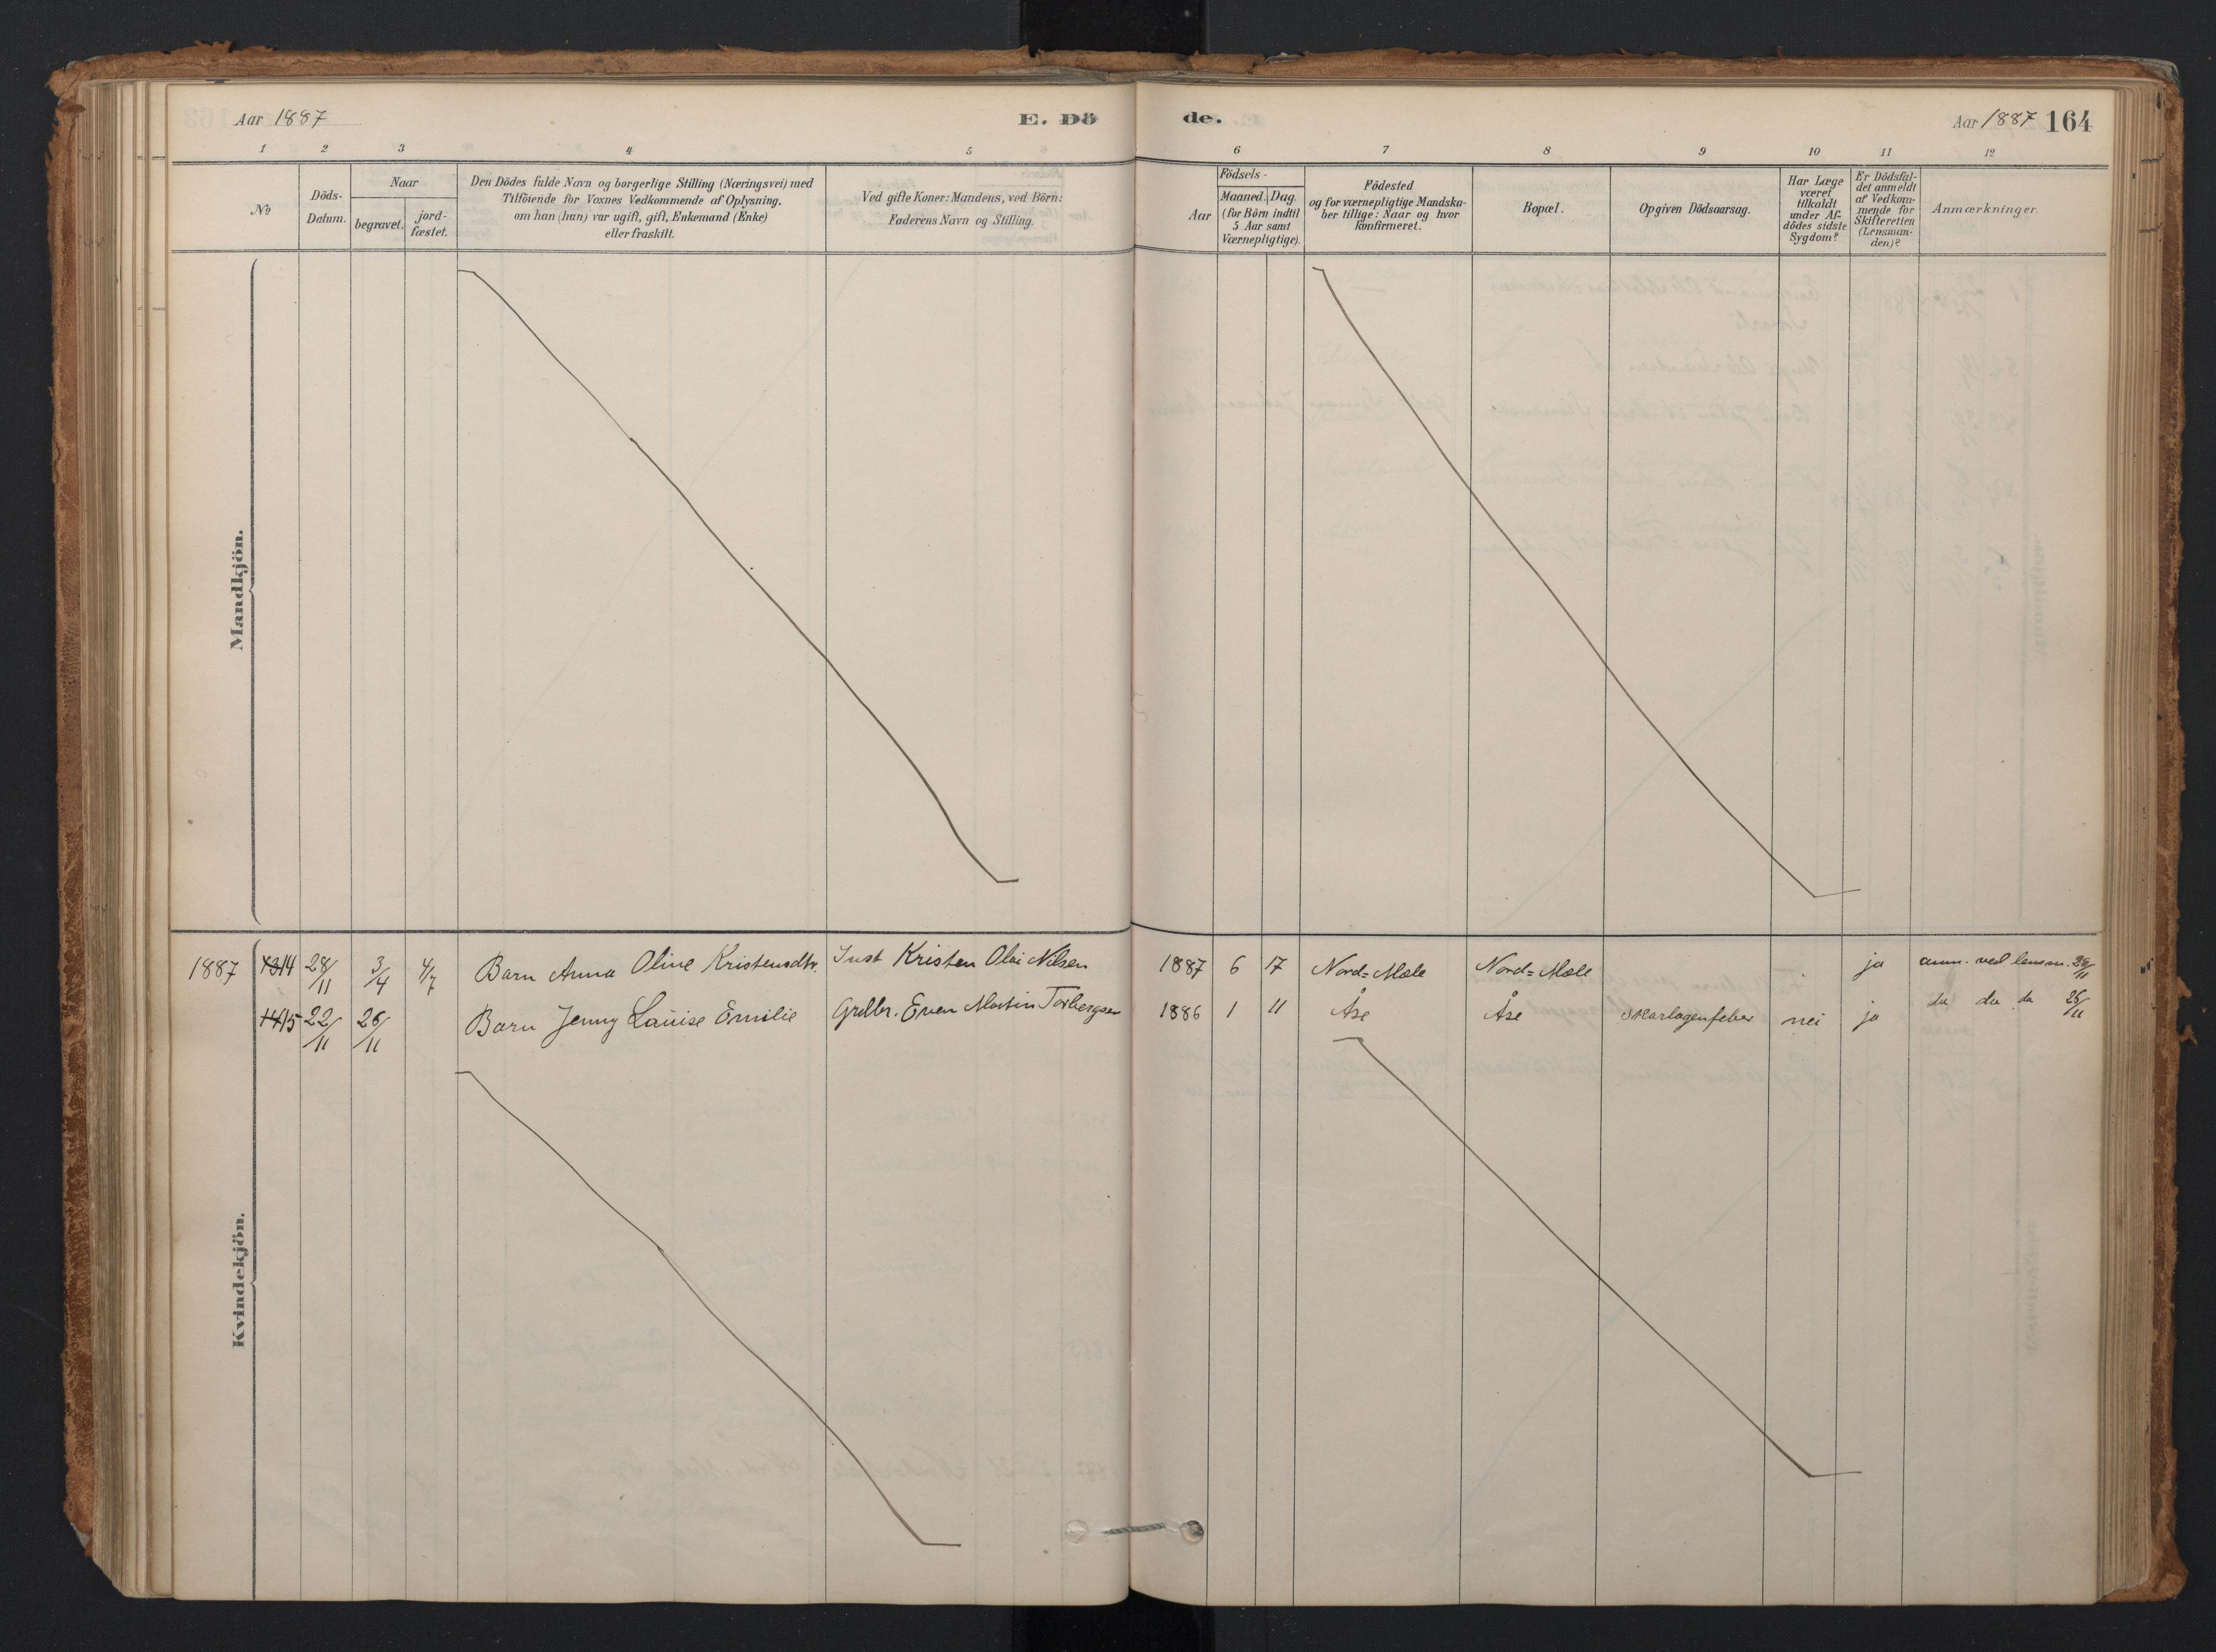 Aar 1887
E. Dö
de.
Aar 1887 164
1 2 3 4 5 6 7 8 9 10 11 12
№
Döds-
Datum.
Naar
begravet.
jord-
fæstet.
Den Dödes fulde Navn og borgerlige Stilling (Næringsvei) med
Tilföiende for Voxnes Vedkommende af Oplysning,
om han (hun) var ugift, gift, Enkemand (Enke)
eller fraskilt.
Ved gifte Koner: Mandens, ved Börn:
Faderens Navn og Stilling.
Födsels-
Aar
Maaned. Dag.
(for Börn indtil
5 Aar samt
Værnepligtige).
Födested
og for værnepligtige Mandska-
ber tillige: Naar og hvor
konfirmeret.
Bopæl.
Opgiven Dödsaarsag.
Har Læge
været
tilkaldt
under Af-
dödes sidste
Sygdom?
Er Dödsfal-
det anmeldt
af Vedkom-
mende for
Skifteretten
(Lensman-
den)?
Anmærkninger.
Mandkjön.
Kvindekjön.
1887 13 14 28/11 3/4 4/7 Barn Anna Oline Kristensdtr. Inst Kristen Olai Nilsen 1887 6 17 Nord=Mæle Nord=Mæle ja anm. ved lensm. 28/11
14 15 22/11 26/11 Barn Jenny Lauise Emilie Grdbr. Even Martin Torbergsen 1886 1 11 Åse Åse Skarlagenfeber nei ja do do do 26/11